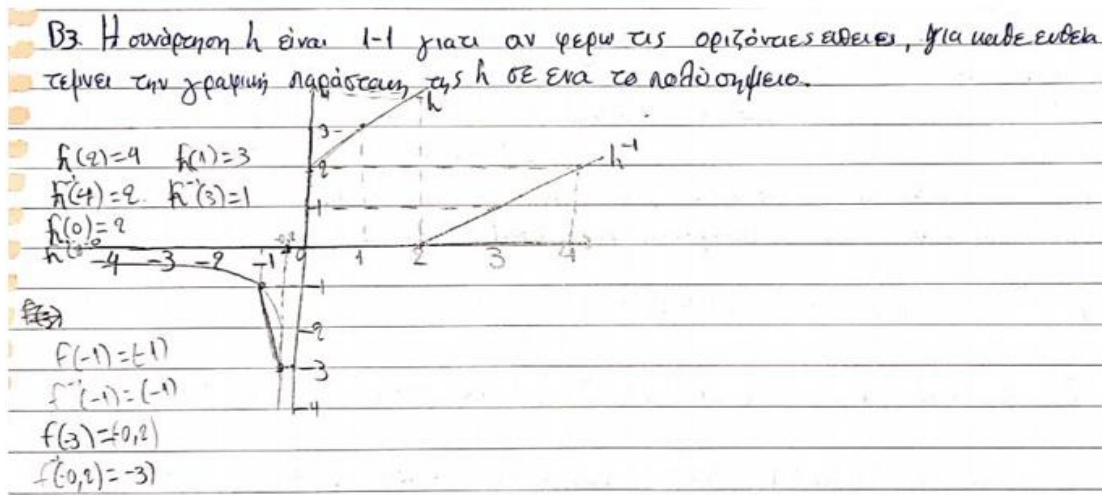 Β3. Η συνάρτηση h είναι 1-1 γιατι αν φερω τις οριζόντιες ευθειες, για καθε ευθεία
τεμνει την γραφική παράσταση της h σε ενα το πολύ σημειο.
h
3
h(2)=4 h(1)=3
2
h⁻¹
h⁻¹(4)=2. h⁻¹(3)=1
1
h(0)=2
-4 -3 -2 -1 0 1 2 3 4
-1
-2
f(-1)=(-1)
-3
f⁻¹(-1)=(-1)
-4
f(-3)=(-0,2)
f⁻¹(-0,2)=-3)